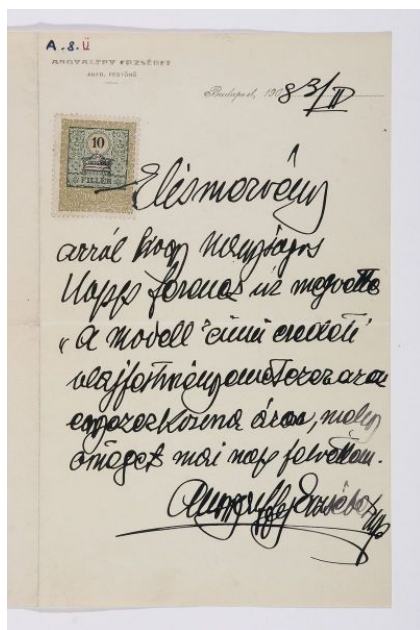 A. 8. Ü
ANGYALFFY ERZSÉBET
AKAD. FESTŐNŐ
Budapest, 1908 3/IV
10
FILLÉR
Elismervény
arról hogy Nagyságos
Hopp Ferenc úr megvette
„A modell" című eredeti
olajfestményemet
korona áron, mely
összeget mai nap felvettem.
Angyalffy Erzsébet